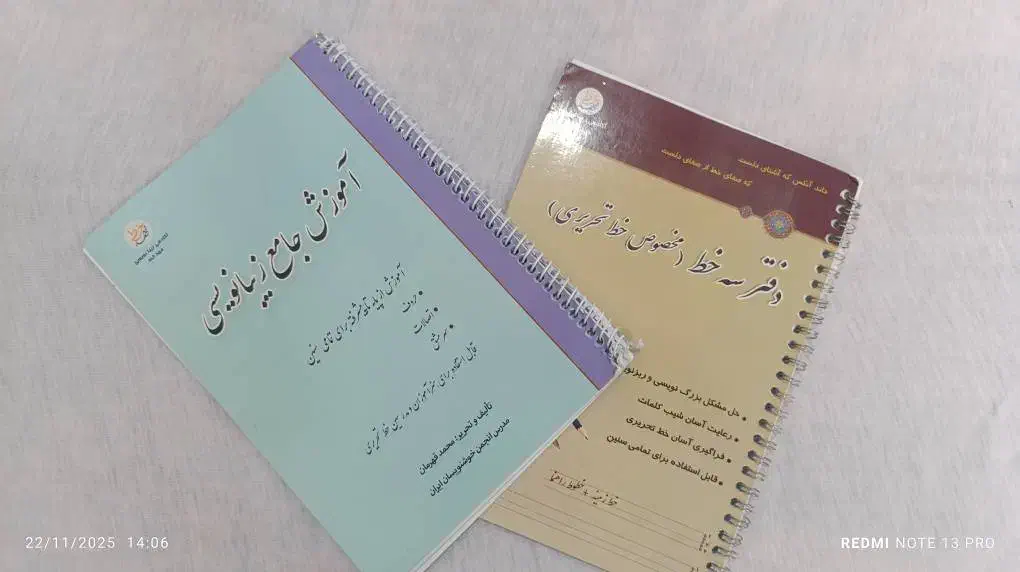 آموزش جامع زیبانویسی
آموزش از پایه تا پیشرفته برای تمامی سنین
• حروف
• اتصالات
• سرمشق
قابل استفاده برای هنرآموزان و مدرسین خط تحریری
تألیف و تحریر: محمد قهرمان
مدرس انجمن خوشنویسان ایران
داند آنکس که آشنای دلست
که صفای خط از صفای دلست
دفتر سه خط (مخصوص خط تحریری)
• حل مشکل بزرگ نویسی و ریزنو
• رعایت آسان شیب کلمات
• فراگیری آسان خط تحریری
• قابل استفاده برای تمامی سنین
خط زمینه با خطوط راهنما
22/11/2025 14:06
REDMI NOTE 13 PRO